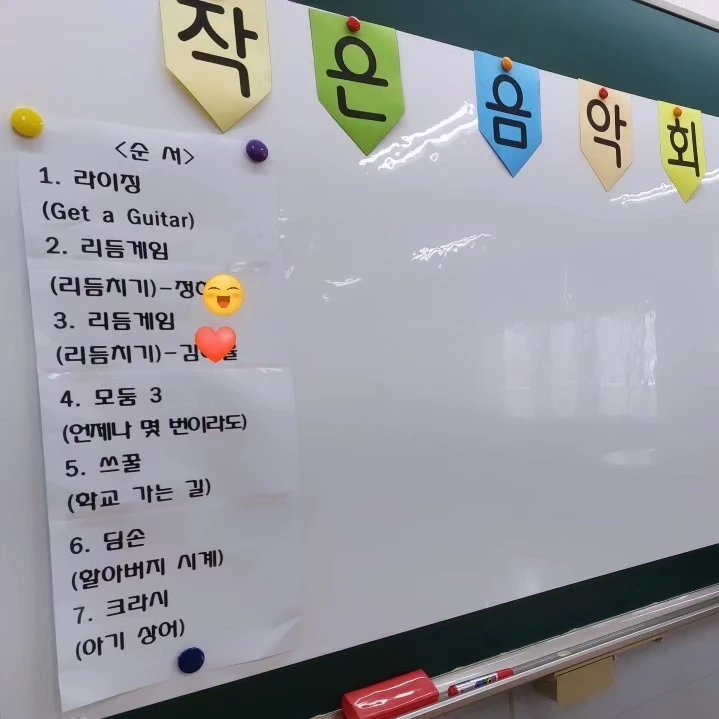 작은 음악회
<순 서>
1. 라이징
(Get a Guitar)
2. 리듬게임
(리듬치기)-정
3. 리듬게임
(리듬치기)-김
4. 모둠 3
(언제나 몇 번이라도)
5. 쓰꿀
(학교 가는 길)
6. 딤손
(할아버지 시계)
7. 크라시
(아기 상어)